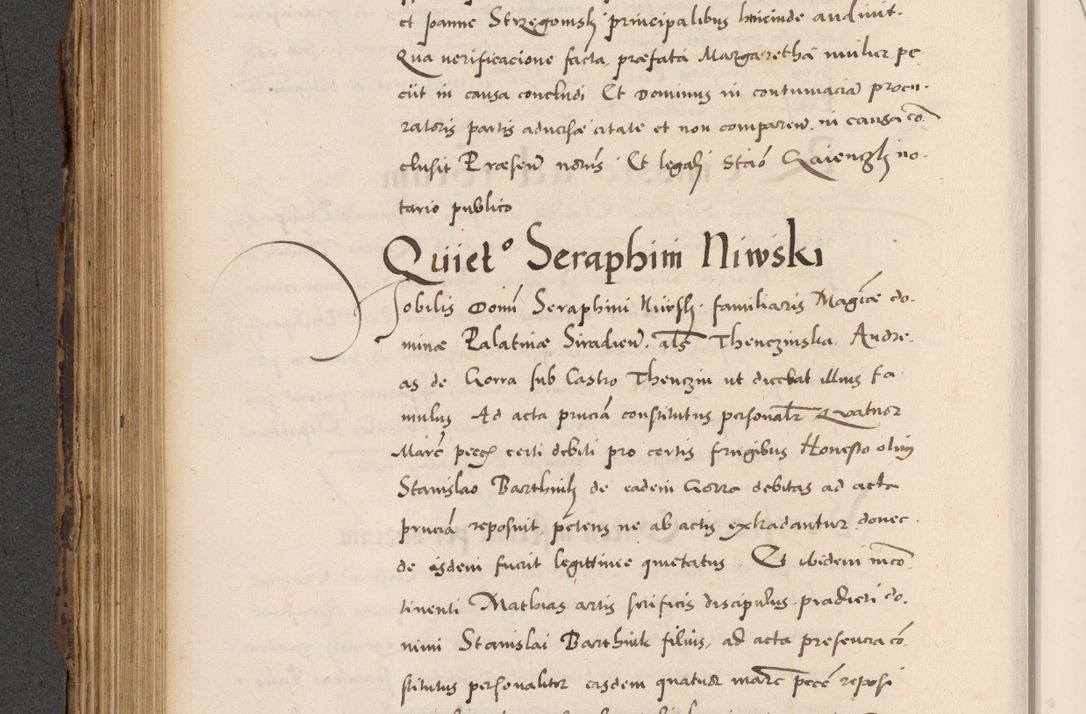 et Joanne Strzegomsky principalibus hincinde audivit.
Qua verificacione facta, præfata Margarethā mulier pe
ciit in causa concludi Et Dominus in contumaciā procu-
ratoris partis adversæ citatæ et non comparen̄. in causa cō
clusit Præsen̄ nōrūs. Et legalj Staō Gaienczkj no-
tario publico
Quiet° Seraphim Niwski
Nobilis Dom̄ Seraphim Niwskj familiaris Magcæ do-
minæ Palatinæ Siradien̄. als̄ Thenczinska. Andre-
as de Gorra sub Castro Thenczin ut dicebat illius fa-
mulus Ad acta pn̄ciā constitutus personalr̄ Quatuor
Marc̄ pecc̄ certi debiti pro certis frugibus Honesto olim
Stanislao Barthnik de eadem Gorra debitas ad acta
pn̄ciā reposuit petens ne ab actis extradantur donec
de eisdem fuerit legittime quietatus. Et ibidem incō
tinenti Mathias artis serificis discipulus prædicti do-
mini Stanislai Barthnik filius, ad acta presencia cō
stitutus personaliter easdem quatuor marc̄ pecc̄ reposi